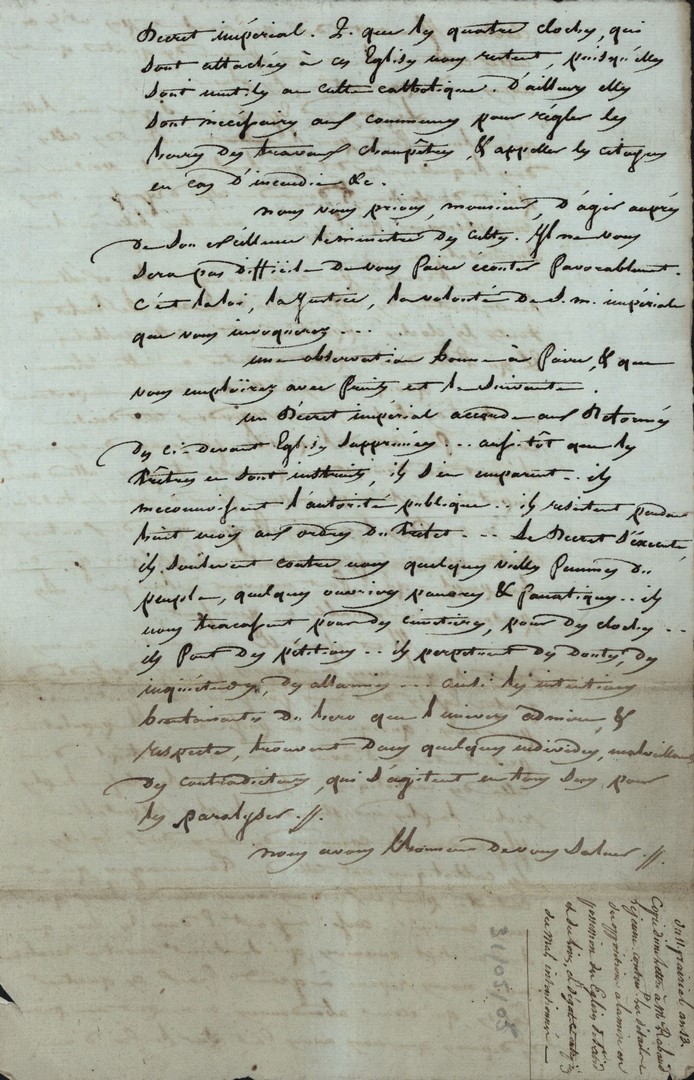 Decret impérial. 2. que les quatre cloches, qui
sont attachées à ces Eglises nous restent, puisqu'elles
sont inutiles au culte catholique. D'ailleurs elles
sont nécessaires aux communes pour régler les
heures des travaux champêtres, & appeller les citoyens
en cas D'incendie &c.
nous vous prions, monsieur, D'agir auprès
de son excellence le ministre des cultes. Il ne vous
sera pas difficile de vous faire écouter favorablement.
c'est la loi, la justice, la volonté de S. m. impériale
que vous invoquerez...
une observation bonne à faire, & que
vous emploirez avec fruit est la suivante.
un Décret impérial accorde aux Réformés
des ci-devant Eglises supprimées... aussitôt que les
Prêtres en sont instruits, ils s'en emparent... ils
méconnoissent l'autorité publique... ils résistent pendant
huit mois aux ordres du Préfet... Le Decret s'exécute,
ils soulevent contre nous quelques vieilles femmes du
peuple, quelques ouvriers pauvres & fanatiques... ils
nous tracassent pour des cimetières, pour des cloches...
ils font des pétitions... ils perpétuent des doutes, des
inquiétudes, des allarmes... ainsi les intentions
bienfaisantes du heros que l'univers admire, &
respecte, trouvent dans quelques individus, malveillans
des contradicteurs, qui s'agitent en tous sens pour
les paralyser.
nous avons l'honneur de vous saluer.
Du 11 prairial an 13.
Copie d'une lettre à Mr Rabaud
le jeune contenant les détails
des oppositions à la mise en
possession des Eglises
et des dégats
des mal intentionnés
31/05/05